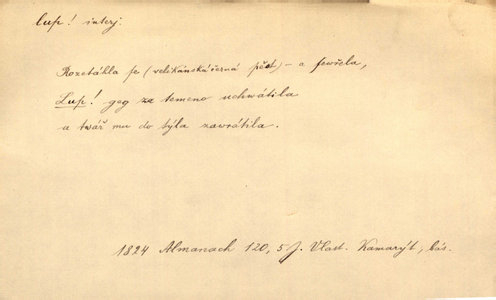 lup! interj.
Roztáhla se (velikánská černá pěst) – a sewřela,
Lup! geg za temeno uchwátila
a twář mu do týla zawrátila.
1824 Almanach 120, 5 J. Vlast. Kamarýt, bás.